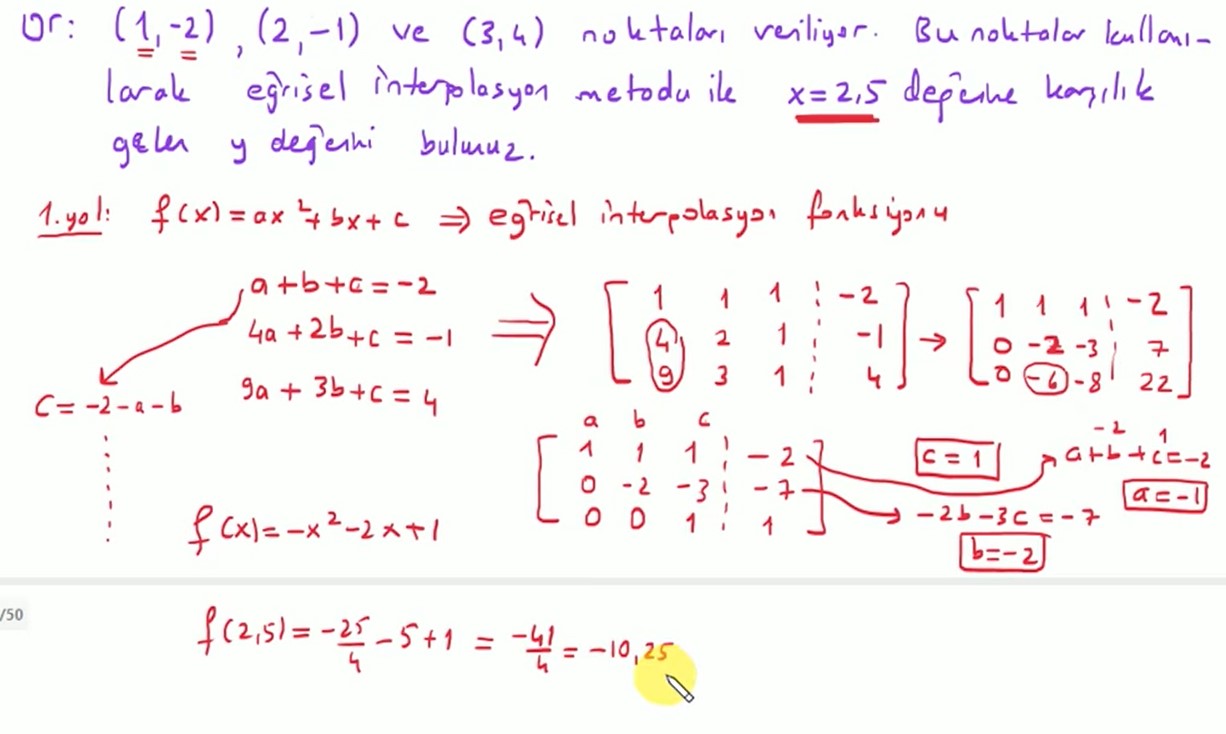 Ör: (1,-2), (2,-1) ve (3,4) noktaları veriliyor. Bu noktalar kullanı-
larak eğrisel interpolasyon metodu ile x=2,5 değerine karşılık
gelen y değerini bulunuz.
1.yol: f(x)=ax²+bx+c ⇒ eğrisel interpolasyon fonksiyonu
a+b+c=-2
4a+2b+c=-1
9a+3b+c=4
C=-2-a-b
[1 1 1 ¦ -2
4 2 1 ¦ -1
9 3 1 ¦ 4] →
[1 1 1 ¦ -2
0 -2 -3 ¦ 7
0 -6 -8 ¦ 22]
a b c
[1 1 1 ¦ -2
0 -2 -3 ¦ -7
0 0 1 ¦ 1]
c=1
-2 1
a+b+c=-2
a=-1
-2b-3c=-7
b=-2
f(x)=-x²-2x+1
/50
f(2,5)=-25/4-5+1=-41/4=-10,25